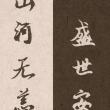 盛世安
山河无恙